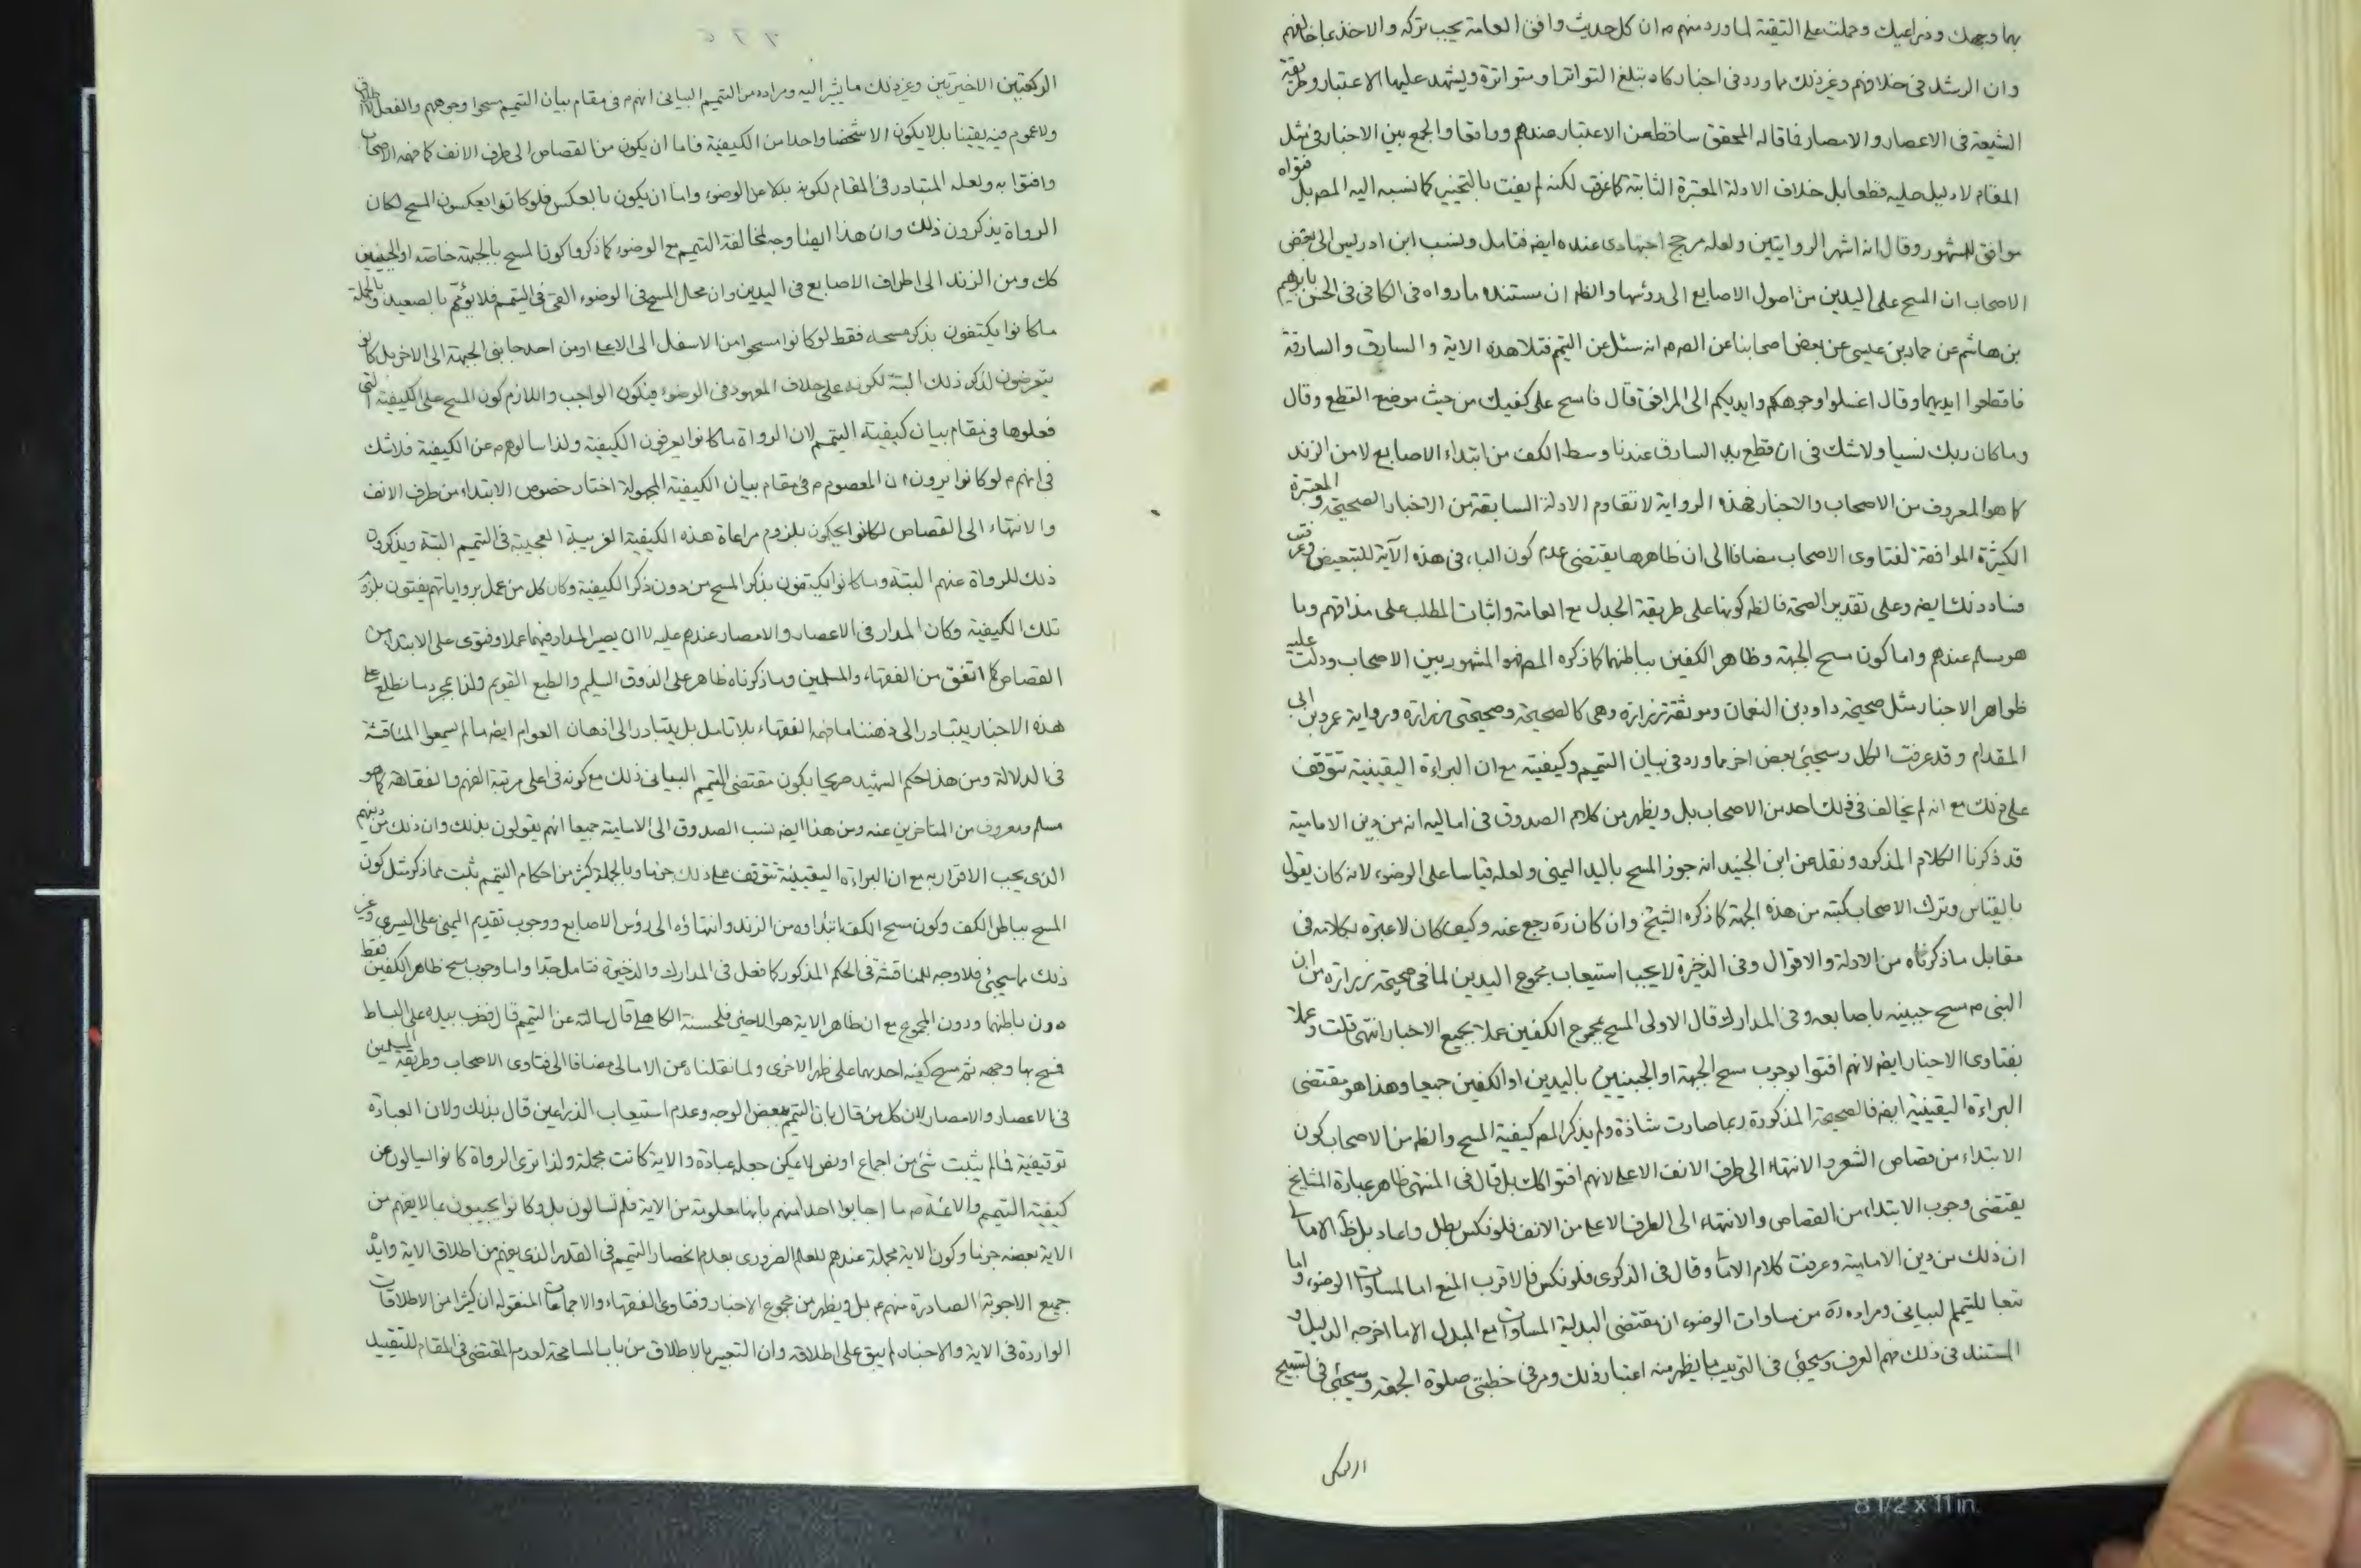 بهما وجهك وذراعيك وحملت على التقية لما ورد منهم م ان كل حديث وافق العامة يجب تركه والاخذ بما خالفهم
وان الرشد فى خلافهم وغير ذلك مما ورد فى اخبار كاد تبلغ التواتر او متواترة ويشهد عليها الاعتبار وطريقة
الشيعة فى الاعصار والامصار فما قاله المحقق ساقط عن الاعتبار عندهم ووافقا والجمع بين الاخبار فى مثل
المقام لا دليل عليه قطعا بل خلاف الادلة المعتبرة الثابتة كما عرفت لكنه لم يفت بالتخيير كما نسبه اليه المص بل فتواه
موافق للمشهور وقال انه اشهر الروايتين ولعله مرجح اجتهادى عنده ايضه فتامل ونسب ابن ادريس الى بعض
الاصحاب ان المسح على اليدين من اصول الاصابع الى رؤسها والظ ان مستنده ما رواه فى الكافى فى الحسن بابراهيم
بن هاشم عن حماد بن عيسى عن بعض اصحابنا عن الص م انه سئل عن التيمم فتلا هذه الاية والسارق والسارقة
فاقطعوا ايديهما وقال اغسلوا وجوهكم وايديكم الى المرافق قال فامسح على كفيك من حيث موضع القطع وقال
وما كان ربك نسيا ولا شك فى ان قطع يد السارق عندنا وسط الكف من ابتداء الاصابع لا من الزند
كما هو المعروف من الاصحاب والاخبار فهذه الرواية لا تقاوم الادلة السابقة من الاخبار الصحيحة والمعتبرة
الكثيرة الموافقة لفتاوى الاصحاب مضافا الى ان ظاهرها يقتضى عدم كون الباء فى هذه الآية للتبعيض وعرفت
فساد ذلك ايضه وعلى تقدير الصحة فالظ كونها على طريقة الجدل مع العامة واثبات المطلب على مذاقهم وما
هو مسلم عندهم واما كون مسح الجبهة وظاهر الكفين بباطنهما كما ذكره المص فهو المشهور بين الاصحاب ودلت عليه
ظواهر الاخبار مثل صحيحة داود بن النعمان وموثقة زرارة وهى كالصحيحة وصحيحتى زرارة ورواية عمرو بن ابى
المقدام وقد عرفت الكل وسيجئ بعض اخر مما ورد فى بيان التيمم وكيفيته مع ان البراءة اليقينية تتوقف
على ذلك مع انه لم يخالف فى ذلك احد من الاصحاب بل ويظهر من كلام الصدوق فى اماليه انه من دين الامامية
قد ذكرنا الكلام المذكور ونقل عن ابن الجنيد انه جوز المسح باليد اليمنى ولعله قياسا على الوضوء لانه كان يقول
بالقياس وترك الاصحاب كتبه من هذه الجهة كما ذكره الشيخ وان كان ره رجع عنه وكيف كان لا عبرة بكلامه فى
مقابل ما ذكرناه من الادلة والاقوال وفى الذخيرة لا يجب استيعاب مجموع اليدين لما فى صحيحة زرارة من ان
النبى م مسح جبينه باصابعه وفى المدارك قال الاولى المسح بمجموع الكفين عملا بجميع الاخبار انتهى قلت وعملا
بفتاوى الاخيار ايضه لانهم افتوا بوجوب مسح الجبهة او الجبينين باليدين او الكفين جميعا وهذا هو مقتضى
البراءة اليقينية ايضه فالصحيحة المذكورة ربما صارت شاذة ولم يذكر المص كيفية المسح والظ من الاصحاب كون
الابتداء من قصاص الشعر والانتهاء الى طرف الانف الاعلى لانهم افتوا كك بل قال فى المنتهى ظاهر عبارة المشايخ
يقتضى وجوب الابتداء من القصاص والانتهاء الى الطرف الاعلى من الانف فلو نكس بطل واعاد بل ظ الامالى
ان ذلك من دين الامامية وعرفت كلام الامالى وقال فى الذكرى فلو نكس فالاقرب المنع اما لمساوات الوضوء واما
تبعا للتيمم البيانى ومراده ره من مساوات الوضوء ان مقتضى البدلية المساوات مع المبدل الا ما اخرجه الدليل و
المستند فى ذلك فهم العرف وسيجئ فى الترتيب ما يظهر منه اعتبار ذلك ومر فى خطبتى صلوة الجمعة وسيجئ فى تسبيح
الركعتين الاخيرتين وغير ذلك ما يشير اليه ومراده من التيمم البيانى انهم م فى مقام بيان التيمم مسحوا وجوههم والفعل لا اطلاق
ولا عموم فيه يقينا بل لا يكون الا شخصا واحدا من الكيفية فاما ان يكون من القصاص الى طرف الانف كما فهمه الاصحاب
وافتوا به ولعله المتبادر فى المقام لكونه بدلا من الوضوء واما ان يكون بالعكس فلو كانوا يعكسون المسح لكان
الرواة يذكرون ذلك وان هذا ايضا وجه لمخالفة التيمم مع الوضوء كما ذكروا كون المسح بالجبهة خاصة او الجبينين
كك ومن الزند الى اطراف الاصابع فى اليدين وان محل المسح فى الوضوء القى فى التيمم فلا يؤمم بالصعيد وبالجملة
ما كانوا يكتفون بذكر مسحه فقط لو كانوا مسحوا من الاسفل الى الاعلى او من احد جانبى الجبهة الى الاخر بل كانوا
يتعرضون لذكر ذلك البتة لكونه على خلاف المعهود فى الوضوء فيكون الواجب واللازم كون المسح على الكيفية التى
فعلوها فى مقام بيان كيفية التيمم لان الرواة ما كانوا يعرفون الكيفية ولذا سالوهم م عن الكيفية فلا شك
فى انهم م لو كانوا يرون ان المعصوم م فى مقام بيان الكيفية المجهولة اختار خصوص الابتداء من طرف الانف
والانتهاء الى القصاص لكانوا يحكون بلزوم مراعاة هذه الكيفية الغريبة العجيبة فى التيمم البتة ويذكرون
ذلك للرواة عنهم البتة وما كانوا يكتفون بذكر المسح من دون ذكر الكيفية وكان كل من عمل برواياتهم يفتون بلزوم
تلك الكيفية وكان المدار فى الاعصار والامصار عندهم عليه لا ان يصير المدار فيهما عملا وفتوى على الابتداء من
القصاص كما اتفق من الفقهاء والمسلمين وما ذكرناه ظاهر على الذوق السليم والطبع القويم ولذا بمجرد ما نطلع على
هذه الاخبار يتبادر الى ذهننا ما فهمه الفقهاء بلا تامل بل يتبادر الى اذهان العوام ايضه ما لم يسمعوا المناقشة
فى الدلالة ومن هذا حكم الشهيد صريحا بكون مقتضى التيمم البيانى ذلك مع كونه فى اعلى مرتبة الفهم والفقاهة كما هو
مسلم ومعروف من المتاخرين عنه ومن هذا ايضه نسب الصدوق الى الامامية جميعا انهم يقولون بذلك وان ذلك من دينهم
الذى يجب الاقرار به مع ان البراءة اليقينية تتوقف على ذلك جزما وبالجملة كثير من احكام التيمم يثبت مما ذكر مثل كون
المسح بباطن الكف وكون مسح الكف ابتداؤه من الزند وانتهاؤه الى رؤس الاصابع ووجوب تقديم اليمنى على اليسرى وغير
ذلك مما سيجئ فلا وجه للمناقشة فى الحكم المذكور كما فعل فى المدارك والذخيرة فتامل جدا واما وجوب مسح ظاهر الكفين فقط
دون باطنهما ودون المجموع مع ان ظاهر الاية هو الاخير فلحسنة الكاهلى قال سالته عن التيمم قال فضرب بيده على البساط
فمسح بها وجهه ثم مسح كفيه احدهما على ظهر الاخرى ولما نقلناه عن الامالى مضافا الى فتاوى الاصحاب وطريقة المسلمين
فى الاعصار والامصار لان كل من قال بان التيمم ببعض الوجه وعدم استيعاب الذراعين قال بذلك ولان العبادة
توقيفية فما لم يثبت شئ من اجماع او نص لا يمكن جعله عبادة والاية كانت مجملة ولذا ترى الرواة كانوا يسالون عن
كيفية التيمم والائمة م ما اجابوا احدا منهم بانها معلومة من الاية فلم تسالون بل وكانوا يجيبون بما لا يفهم من
الاية بعضه جزما وكون الاية مجملة عندهم للعلم الضرورى بعدم انحصار التيمم فى القدر الذى يفهم من اطلاق الاية وايد
جميع الاجوبة الصادرة منهم م بل ويظهر من مجموع الاخبار وفتاوى الفقهاء والاجماعات المنقولة ان كثيرا من الاطلاقات
الواردة فى الاية والاخبار لم يبق على اطلاقه وان التعبير بالاطلاق من باب المسامحة لعدم المقتضى فى المقام للتقييد